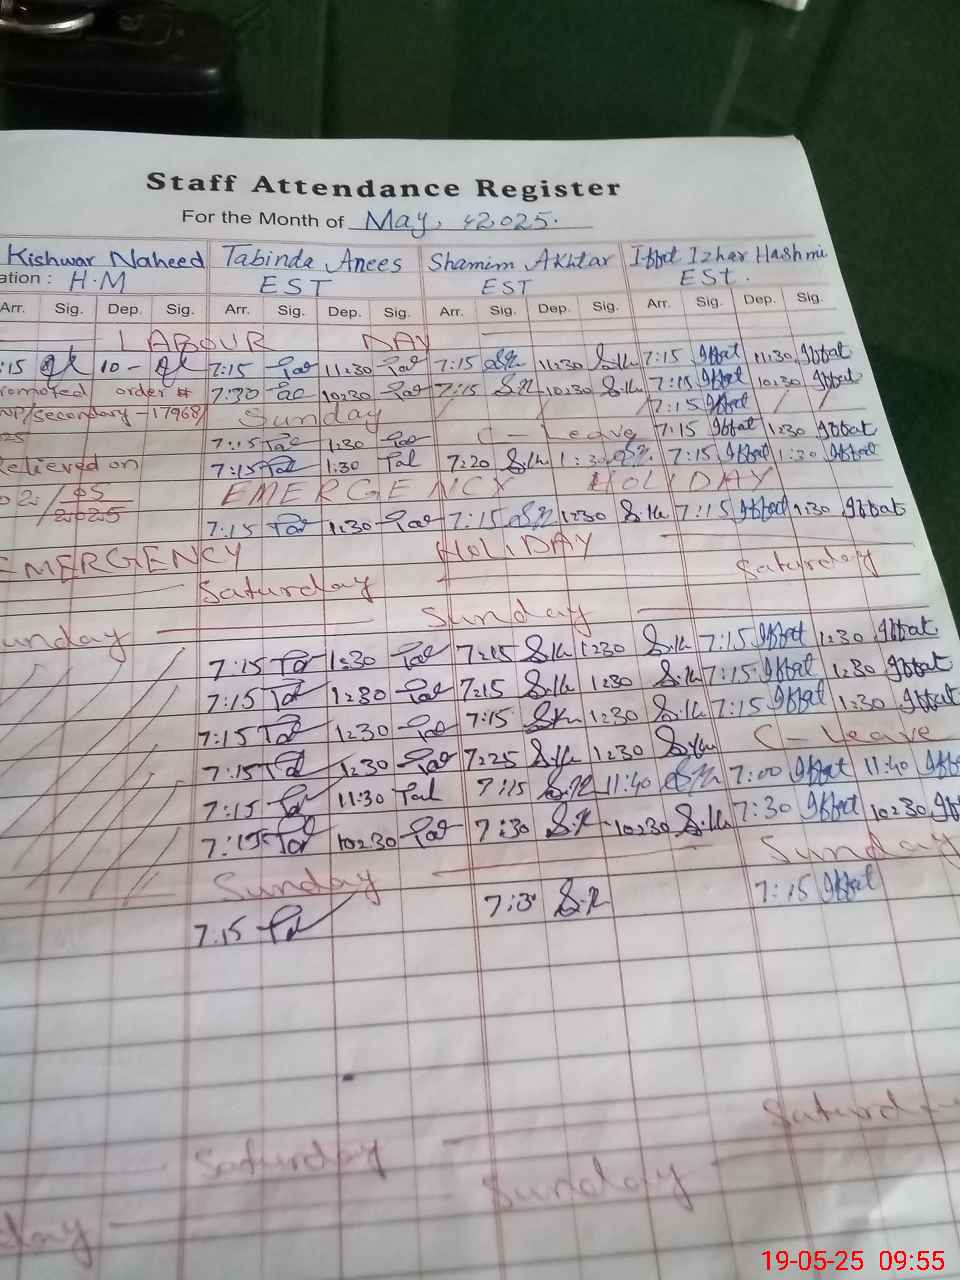 Staff Attendance Register
For the Month of May, 2025.
Kishwar Naheed Tabinda Anees Shamim Akhtar Iffat Izhar Hashmi
ation : H.M EST EST EST.
Arr. Sig. Dep. Sig. Arr. Sig. Dep. Sig. Arr. Sig. Dep. Sig. Arr. Sig. Dep. Sig.
LABOUR DAY
:15 10 - 7:15 11:30 7:15 11:30 S.k 7:15 Iffat 11:30 Iffat
romoted order # 7:30 10:30 7:15 S.k 10:30 S.k 7:15 Iffat 10:30 Iffat
NP/secondary-17968/ Sunday 7:15 Iffat
25 7:15 1:30 C-Leave 7:15 Iffat 1:30 Iffat
Relieved on 7:15 1:30 7:20 S.k 1:30 7:15 Iffat 1:30 Iffat
02/05/2025 EMERGENCY HOLIDAY
7:15 1:30 7:15 1:30 S.k 7:15 Iffat 1:30 Iffat
EMERGENCY HOLIDAY
Saturday Saturday
unday Sunday
7:15 1:30 7:15 S.k 1:30 S.k 7:15 Iffat 1:30 Iffat
7:15 1:30 7:15 S.k 1:30 S.k 7:15 Iffat 1:30 Iffat
7:15 1:30 7:15 S.k 1:30 S.k 7:15 Iffat 1:30 Iffat
7:15 1:30 7:25 S.k 1:30 S.k C-Leave
7:15 11:30 7:15 S.k 11:40 S.k 7:00 Iffat 11:40 Iff
7:15 10:30 7:30 S.k 10:30 S.k 7:30 Iffat 10:30 If
Sunday Sunday
7:15 7:3 S.k 7:15 Iffat
Saturday Saturd
day Sunday
19-05-25 09:55